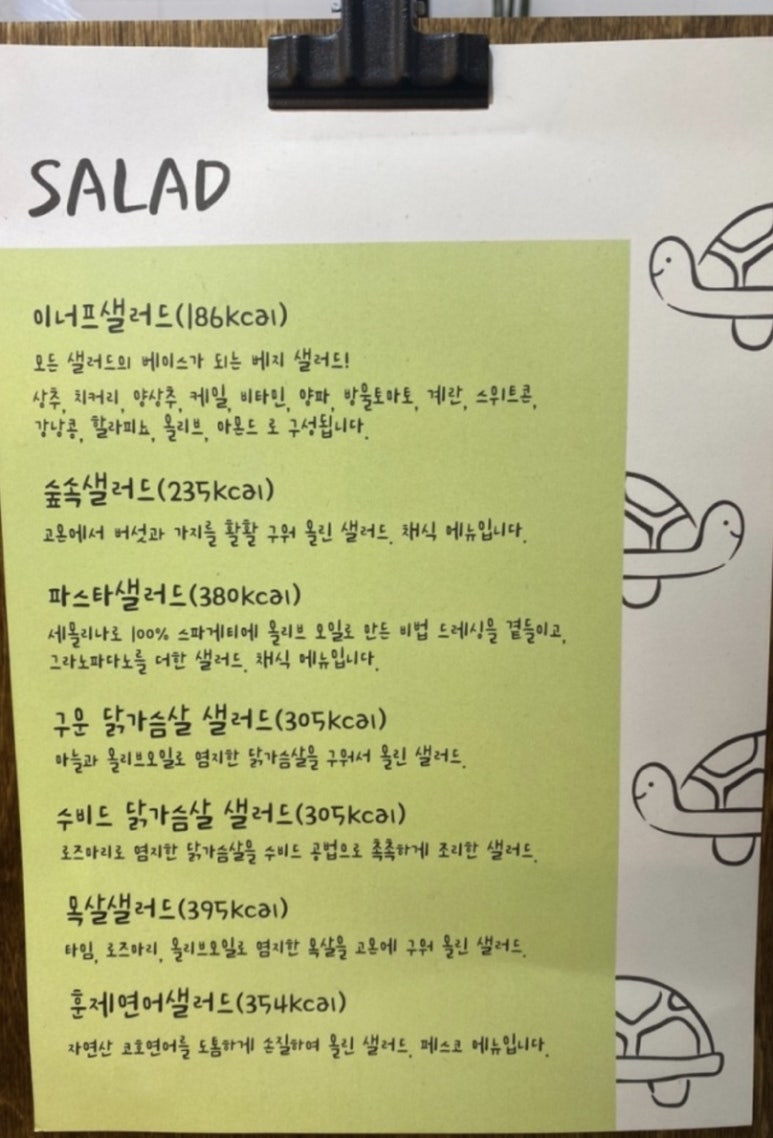 SALAD
이너프샐러드(186kcal)
모든 샐러드의 베이스가 되는 베지 샐러드!
상추, 치커리, 양상추, 케일, 비타민, 양파, 방울토마토, 계란, 스위트콘,
강낭콩, 할라피뇨, 올리브, 아몬드 로 구성됩니다.
숲속샐러드(235kcal)
고온에서 버섯과 가지를 활활 구워 올린 샐러드. 채식 메뉴입니다.
파스타샐러드(380kcal)
세몰리나로 100% 스파게티에 올리브 오일로 만든 비법 드레싱을 곁들이고,
그라노파다노를 더한 샐러드. 채식 메뉴입니다.
구운 닭가슴살 샐러드(305kcal)
마늘과 올리브오일로 염지한 닭가슴살을 구워서 올린 샐러드.
수비드 닭가슴살 샐러드(305kcal)
로즈마리로 염지한 닭가슴살을 수비드 공법으로 촉촉하게 조리한 샐러드.
목살샐러드(395kcal)
타임, 로즈마리, 올리브오일로 염지한 목살을 고온에 구워 올린 샐러드.
훈제연어샐러드(354kcal)
자연산 코호연어를 도톰하게 손질하여 올린 샐러드. 페스코 메뉴입니다.